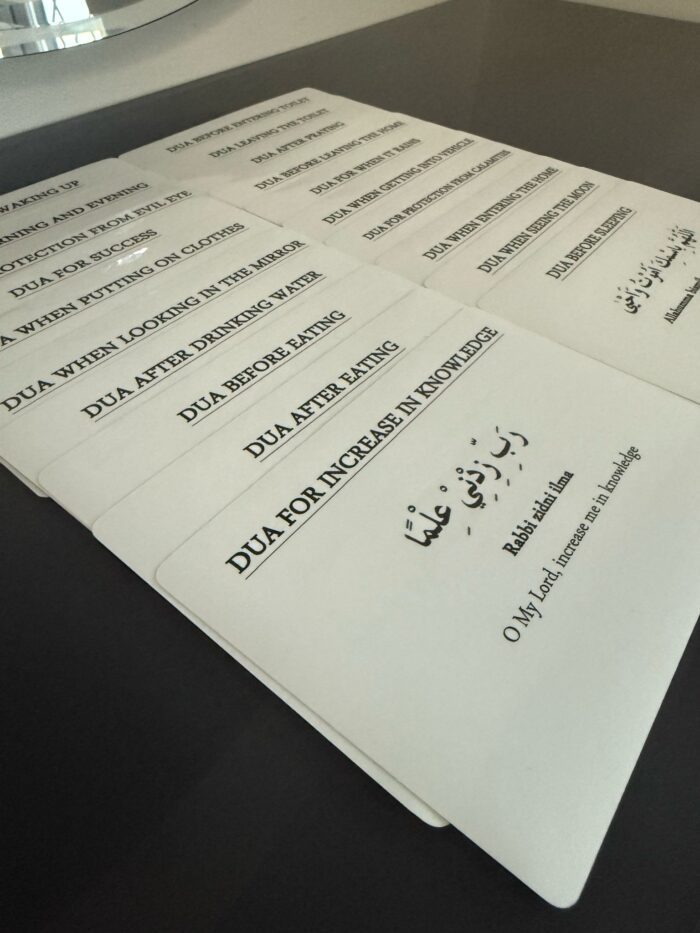 WAKING UP
RNING AND EVENING
OTECTION FROM EVIL EYE
DUA FOR SUCCESS
A WHEN PUTTING ON CLOTHES
DUA WHEN LOOKING IN THE MIRROR
DUA AFTER DRINKING WATER
DUA BEFORE EATING
DUA AFTER EATING
DUA FOR INCREASE IN KNOWLEDGE
رَبِّ زِدْنِي عِلْمًا
Rabbi zidni ilma
O My Lord, increase me in knowledge
DUA BEFORE ENTERING TOILET
DUA LEAVING THE TOILET
DUA AFTER PRAYING
DUA BEFORE LEAVING THE HOME
DUA FOR WHEN IT RAINS
DUA WHEN GETTING INTO VEHICLE
DUA FOR PROTECTION FROM CALAMITIES
DUA WHEN ENTERING THE HOME
DUA WHEN SEEING THE MOON
DUA BEFORE SLEEPING
اَللّٰهُمَّ بِاسْمِكَ اَمُوْتُ وَاَحْيٰى
Allahumma